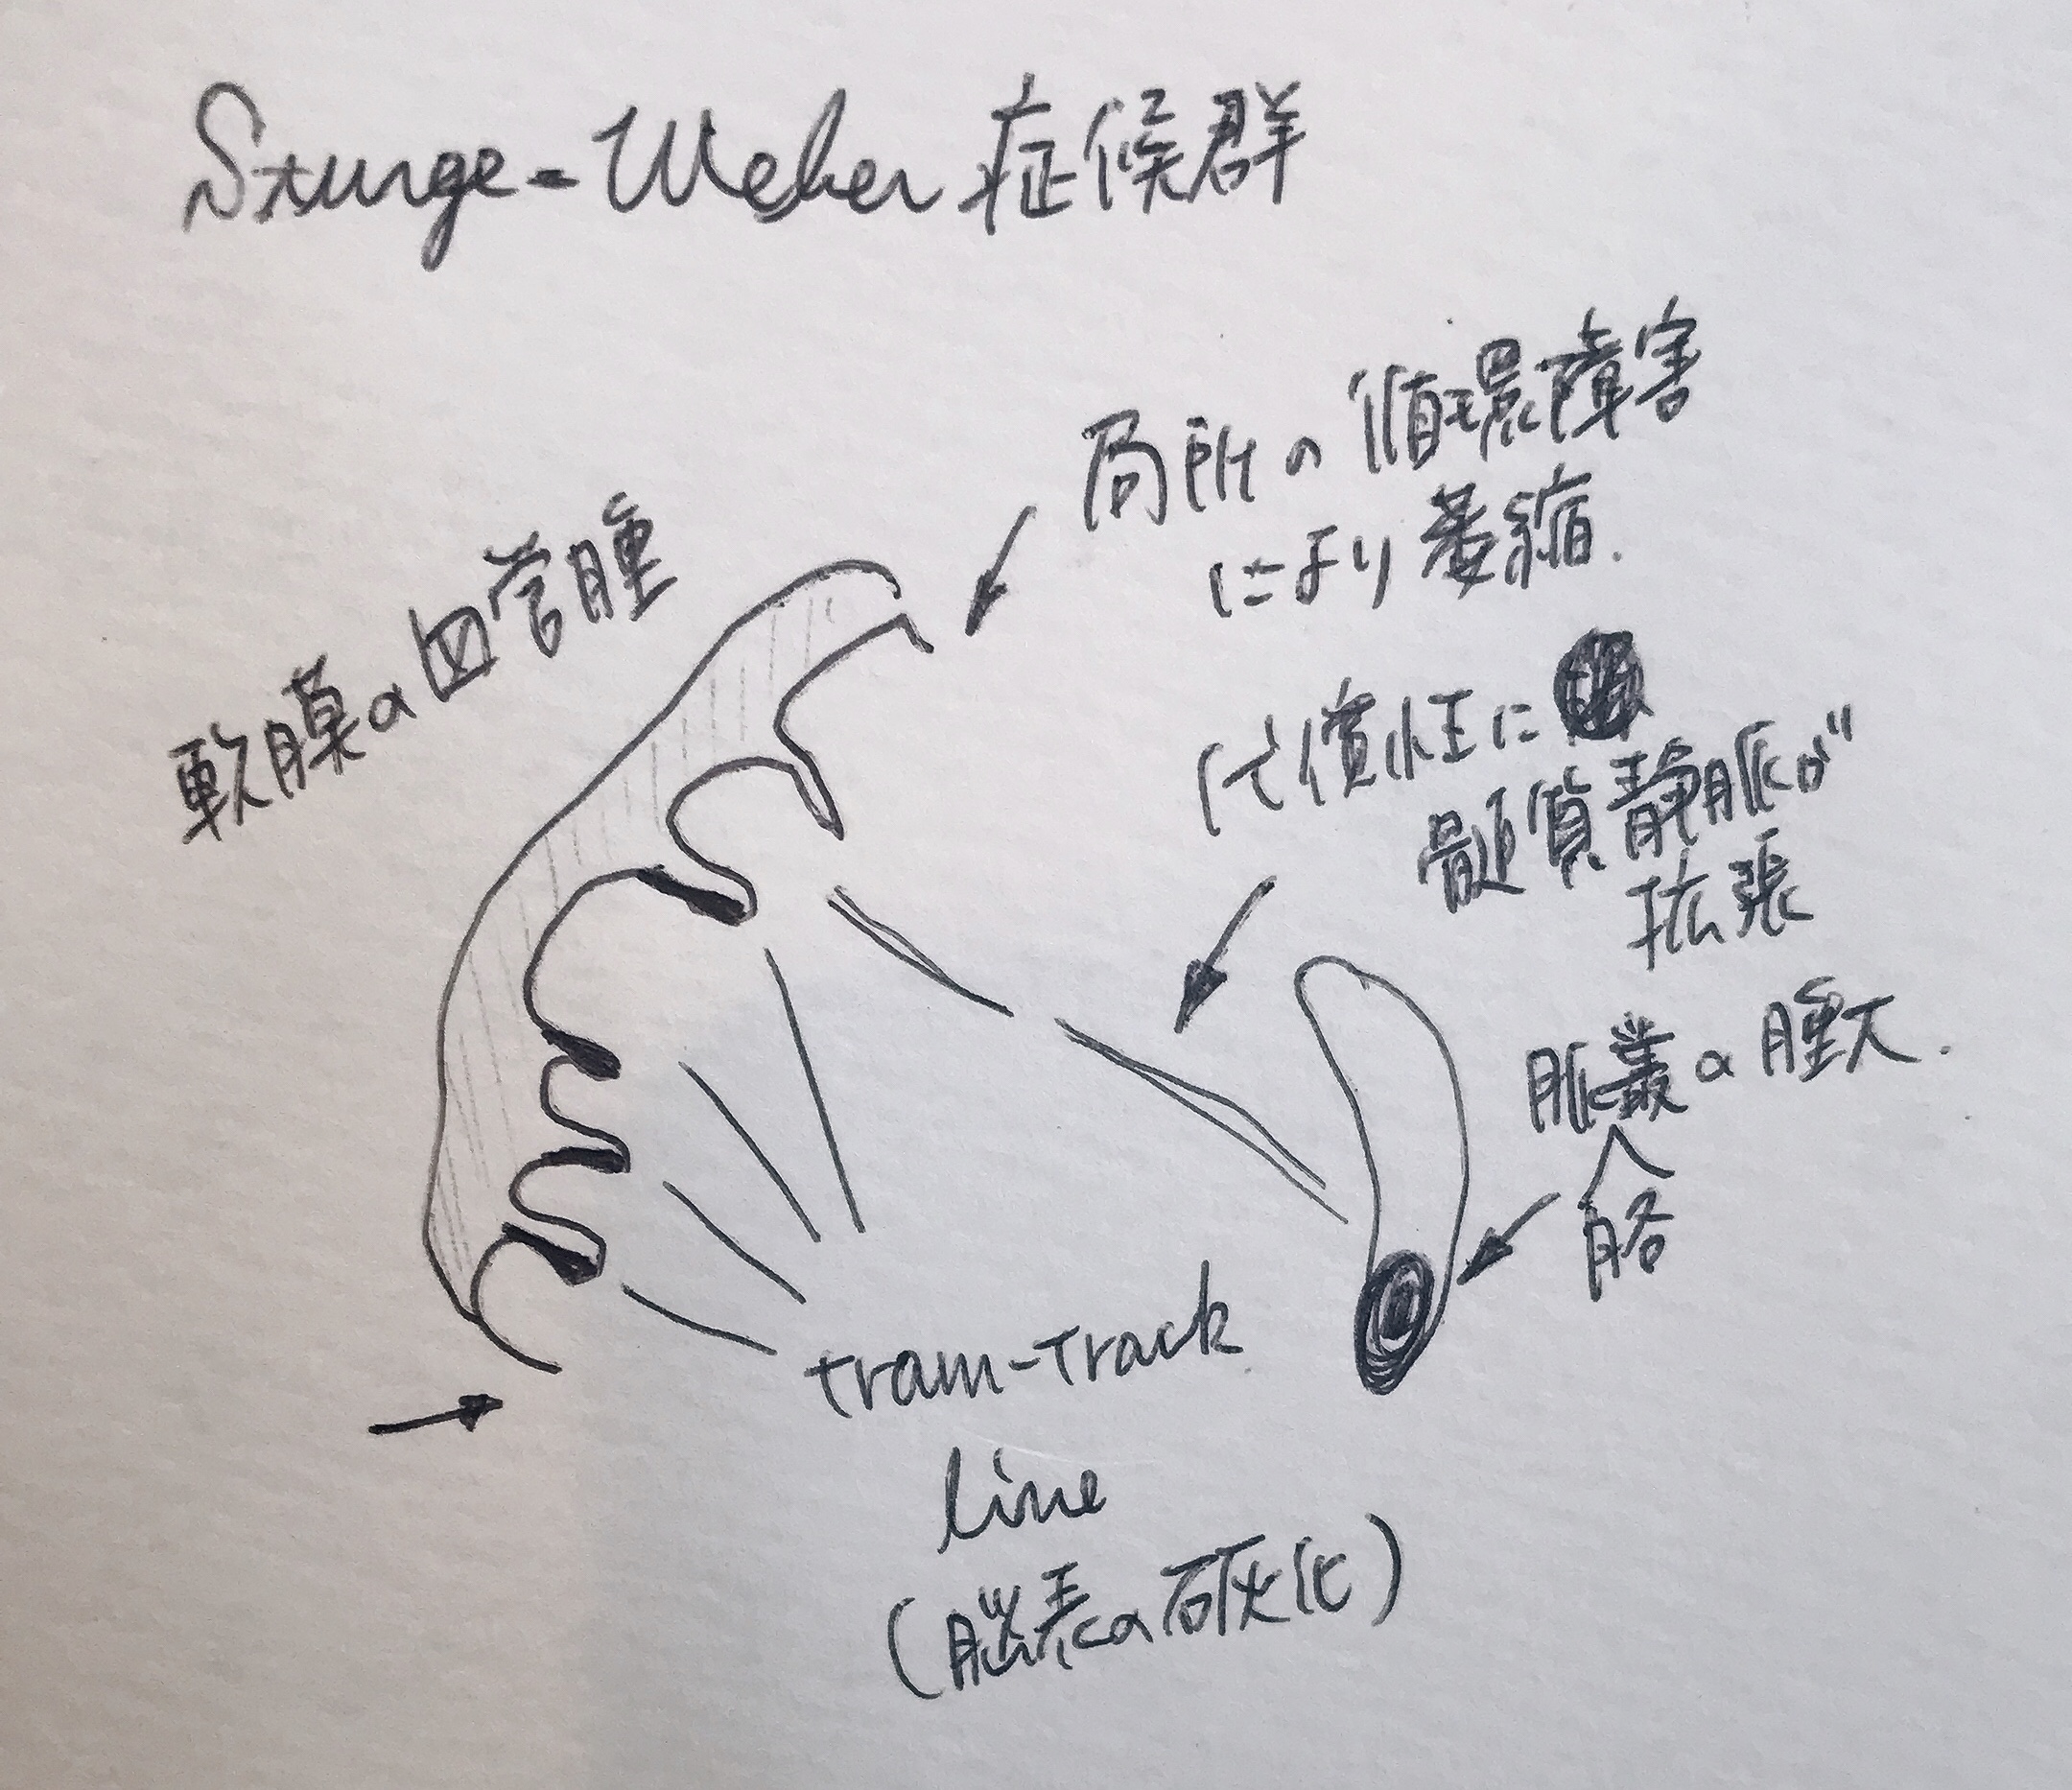 Sturge-Weber症候群
局所の循環障害
により萎縮.
軟膜の血管腫
代償性に
髄質静脈が
拡張
脈叢の腫大.
絡
tram-track
line
(脳表の石灰化)